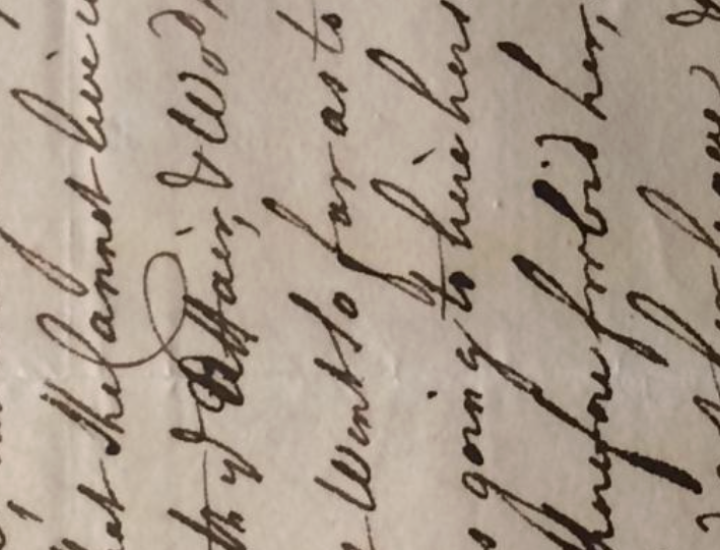 that she Cannot live
th ye Affair, & Wod
Went So far as to
s going to hire hers
therefore forbid her,